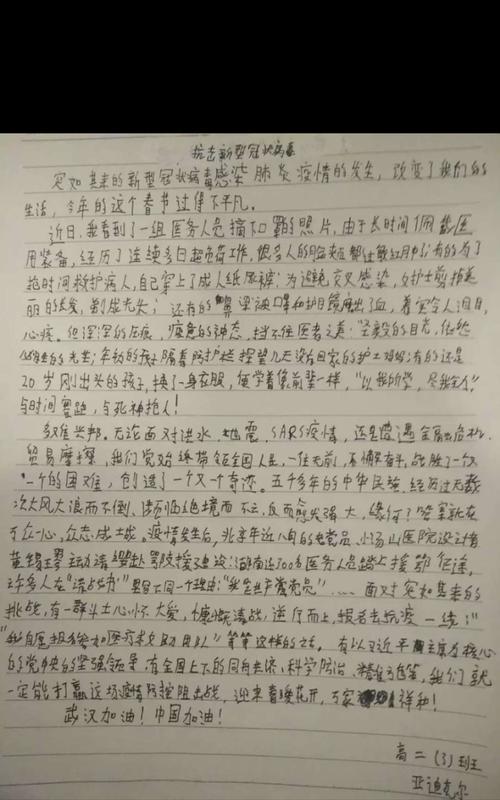 抗击新型冠状病毒
突如其来的新型冠状病毒感染肺炎疫情的发生，改变了我们的
生活，今年的这个春节过得不平凡。
近日，我看到了一组医务人员摘下口罩的照片，由于长时间佩戴医
用装备，经历了连续多日超负荷工作，很多人的脸颊都让勒红肿；有的为了
抢时间救护病人，自己穿上了成人纸尿裤；为避免交叉感染，女护士剪掉美
丽的长发，剃成光头；还有的鼻梁被口罩和护目镜磨出了血，着实令人泪目，
心疼。但深深的压痕，疲惫的神态，挡不住医者之美：坚毅的目光，依然
的光芒；年幼的孩子隔着防护栏探望几天没有回家的护士妈妈；有的还是
20岁刚出头的孩子，换了一身衣服，便学着像前辈一样，“以我所学，尽我全力”，
与时间赛跑，与死神抢人！
多难兴邦。无论面对洪水、地震、SARS疫情，还是遭遇金融危机、
贸易摩擦，我们党始终带领全国人民，一往无前，不懈奋斗，战胜了一个又
一个的困难，创造了一个又一个奇迹。五千多年的中华民族，经历过无数
次大风大浪而不倒、涉历绝境而不亡，反而愈发强大，缘何？答案就在
万众一心，众志成城。疫情发生后，北京年近八旬的老党员、小汤山医院设计者
黄锡璆主动请缨赴鄂院援建设；湖南近500名医务人员踏上援鄂征途，
许多人在“请战书”里写下同一个理由：“我是共产党党员”……面对突如其来的
挑战，有一群斗士心怀大爱，慷慨请战，逆行而上，报名去抗疫一线；“
我自愿报名参加医疗救助队”等等这样的文。有以习近平主席为核心
的党中央的坚强领导，有全国上下的同舟共济、科学防治、精准施策，我们就
一定能打赢这场疫情防控阻击战，迎来春暖花开，万家祥和！
武汉加油！中国加油！
高二（3）班
亚迪克尔